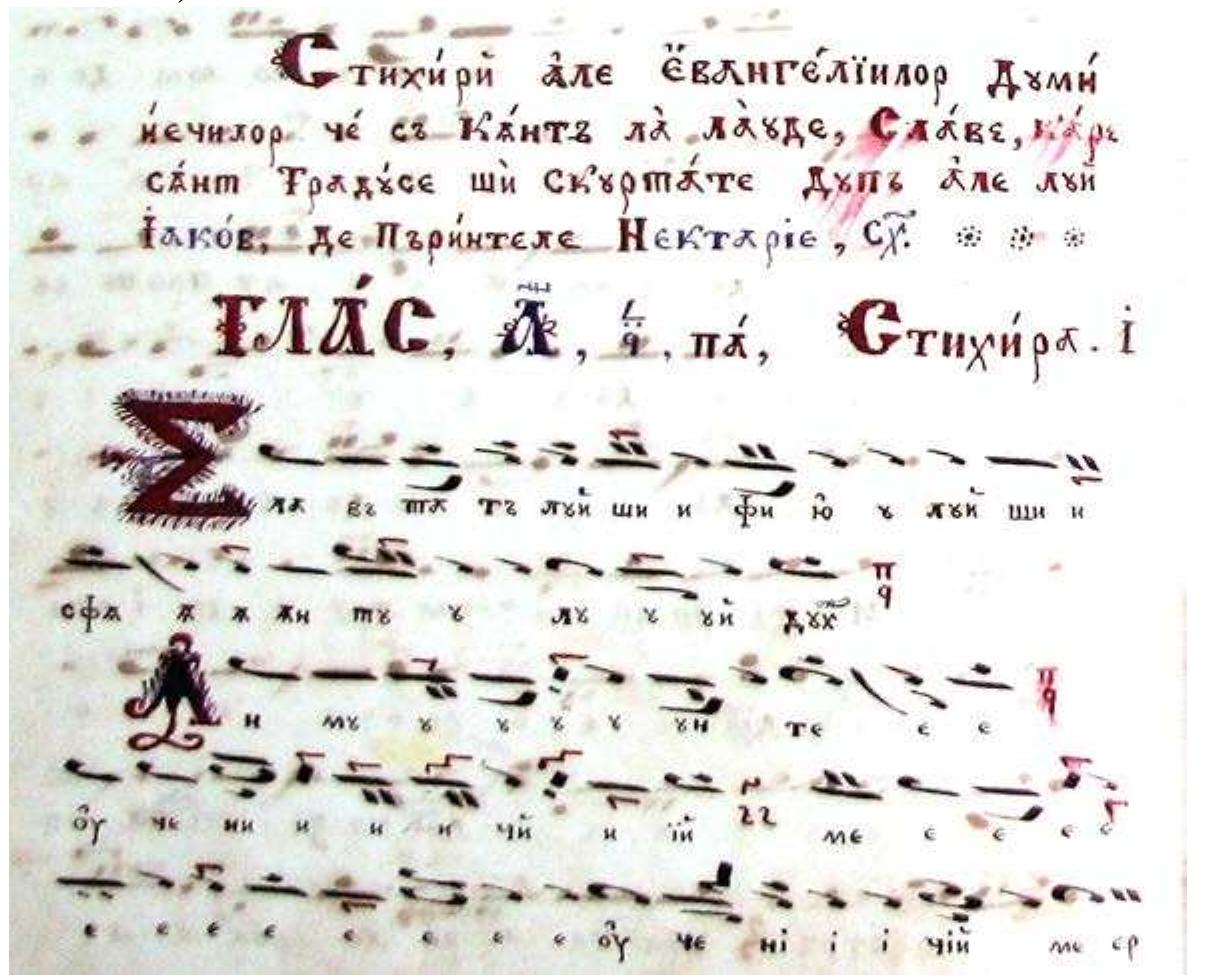 Стихи́рй а҆ле є҆ванге́лїилор Дꙋми́
не́чилор че́ съ Кѫ́нтъ ла̀ ла̀ꙋде, Сла́ве, ка́ре
сѫ́нт Традꙋ́се шѝ скꙋрта́те Дꙋпъ а҆ле лꙋй
І҆ако́в, де Пъри́нтеле Нектаріе, Сх҃.
ГЛА́С, А҃, па́, Стихи́ра. І
Славъ татъ лꙋй ши и фи ю҆ ꙋ лꙋй ши и
сфѫ ѫ ѫ ѫн тꙋ ꙋ лꙋ ꙋ ꙋй дꙋх
Ан мꙋ ꙋ ꙋ ꙋ ꙋ ꙋн те е е
оу҆ че ни и и и чй и їй ме е е е е
е е е е е е е е оу҆ че ні і і чій ме ер